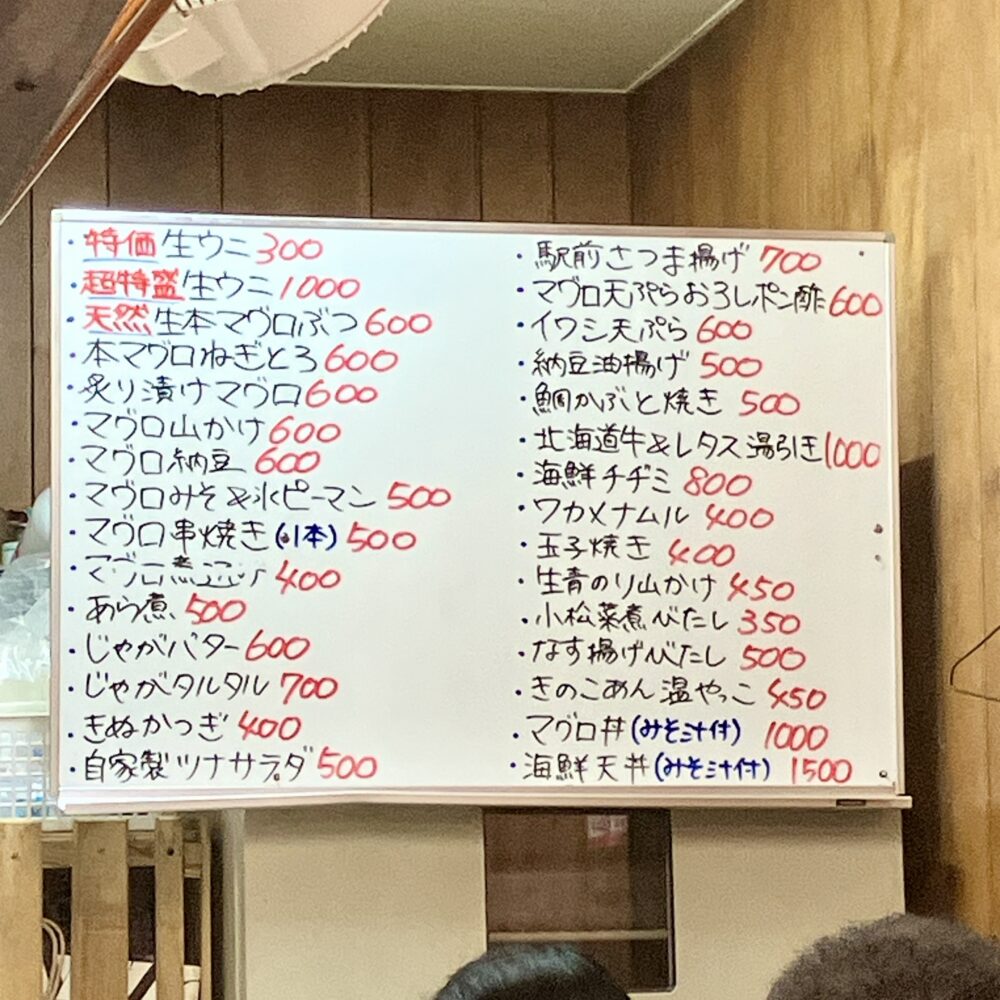 ・特価生ウニ300
・超特盛生ウニ1000
・天然生本マグロぶつ600
・本マグロねぎとろ600
・炙り漬けマグロ600
・マグロ山かけ600
・マグロ納豆600
・マグロみそ&氷ピーマン500
・マグロ串焼き(1本)500
・マグロ 400
・あら煮500
・じゃがバター600
・じゃがタルタル700
・きぬかつぎ400
・自家製ツナサラダ500
・駅前さつま揚げ700
・マグロ天ぷらおろしポン酢600
・イワシ天ぷら600
・納豆油揚げ500
・鯛かぶと焼き500
・北海道牛&レタス湯引き1000
・海鮮チヂミ800
・ワカメナムル400
・玉子焼き400
・生青のり山かけ450
・小松菜煮びたし350
・なす揚げびたし500
・きのこあん温やっこ450
・マグロ丼(みそ汁付)1000
・海鮮天丼(みそ汁付)1500